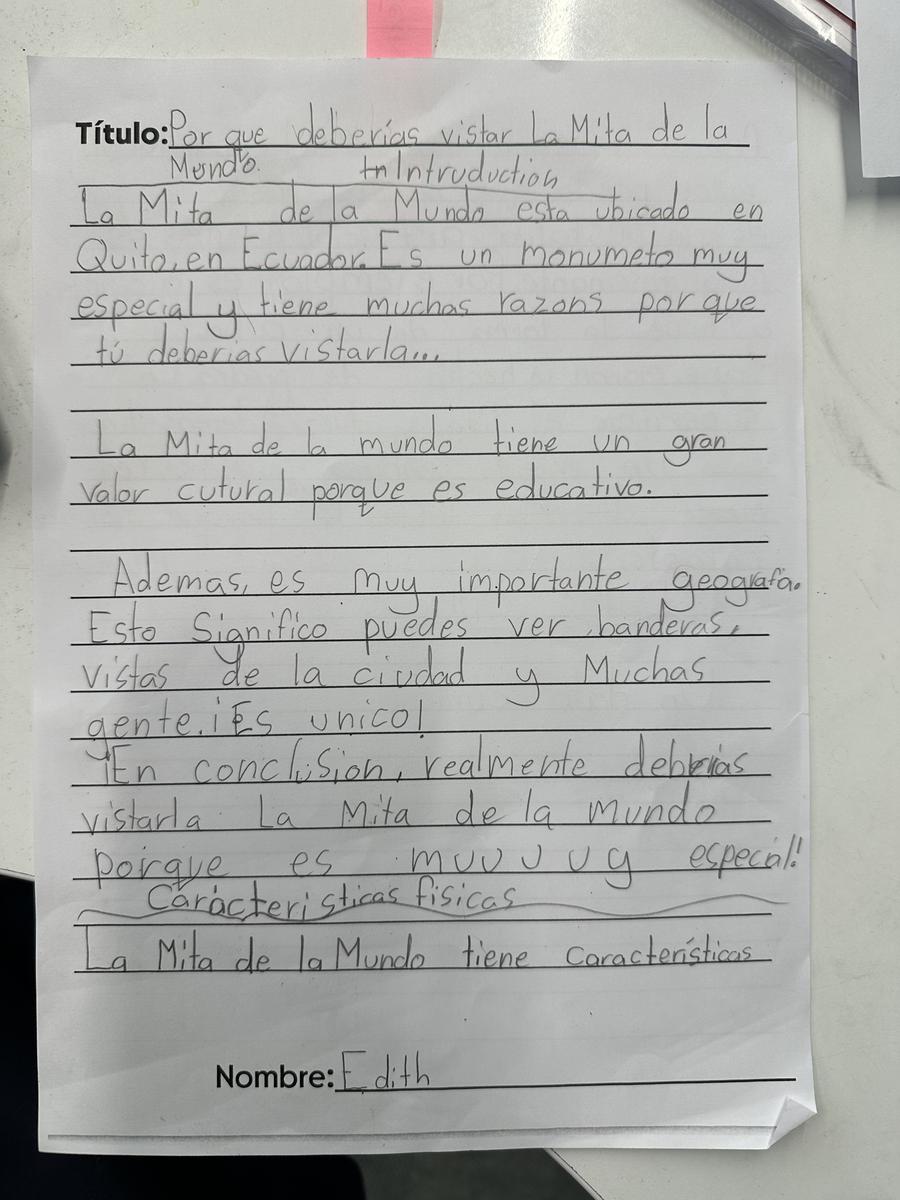 Título: Por que deberías vistar La Mita de la
Mundo. Intruduction
La Mita de la Mundo esta ubicado en
Quito, en Ecuador. Es un monumeto muy
especial y tiene muchas razons por que
tú deberias vistarla...
La Mita de la mundo tiene un gran
valor cutural porque es educativo.
Ademas, es muy importante geografía.
Esto Significo puedes ver banderas,
vistas de la ciudad y Muchas
gente. ¡Es unico!
¡En conclusion, realmente deberias
vistarla La Mita de la mundo
porque es muuuuy especial!
Carácteristicas fisicas
La Mita de la Mundo tiene Características
Nombre: Edith